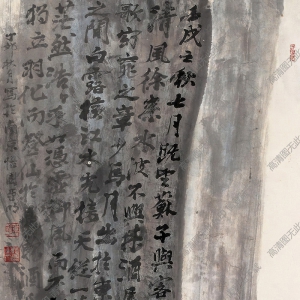 壬戌之秋七月既望蘇子與客
清風徐來水波不興舉酒屬
歌窈窕之章少焉月出於東
之間白露橫江水光接天縱一
茫然浩浩乎如馮虛御風而不
獨立羽化而登仙